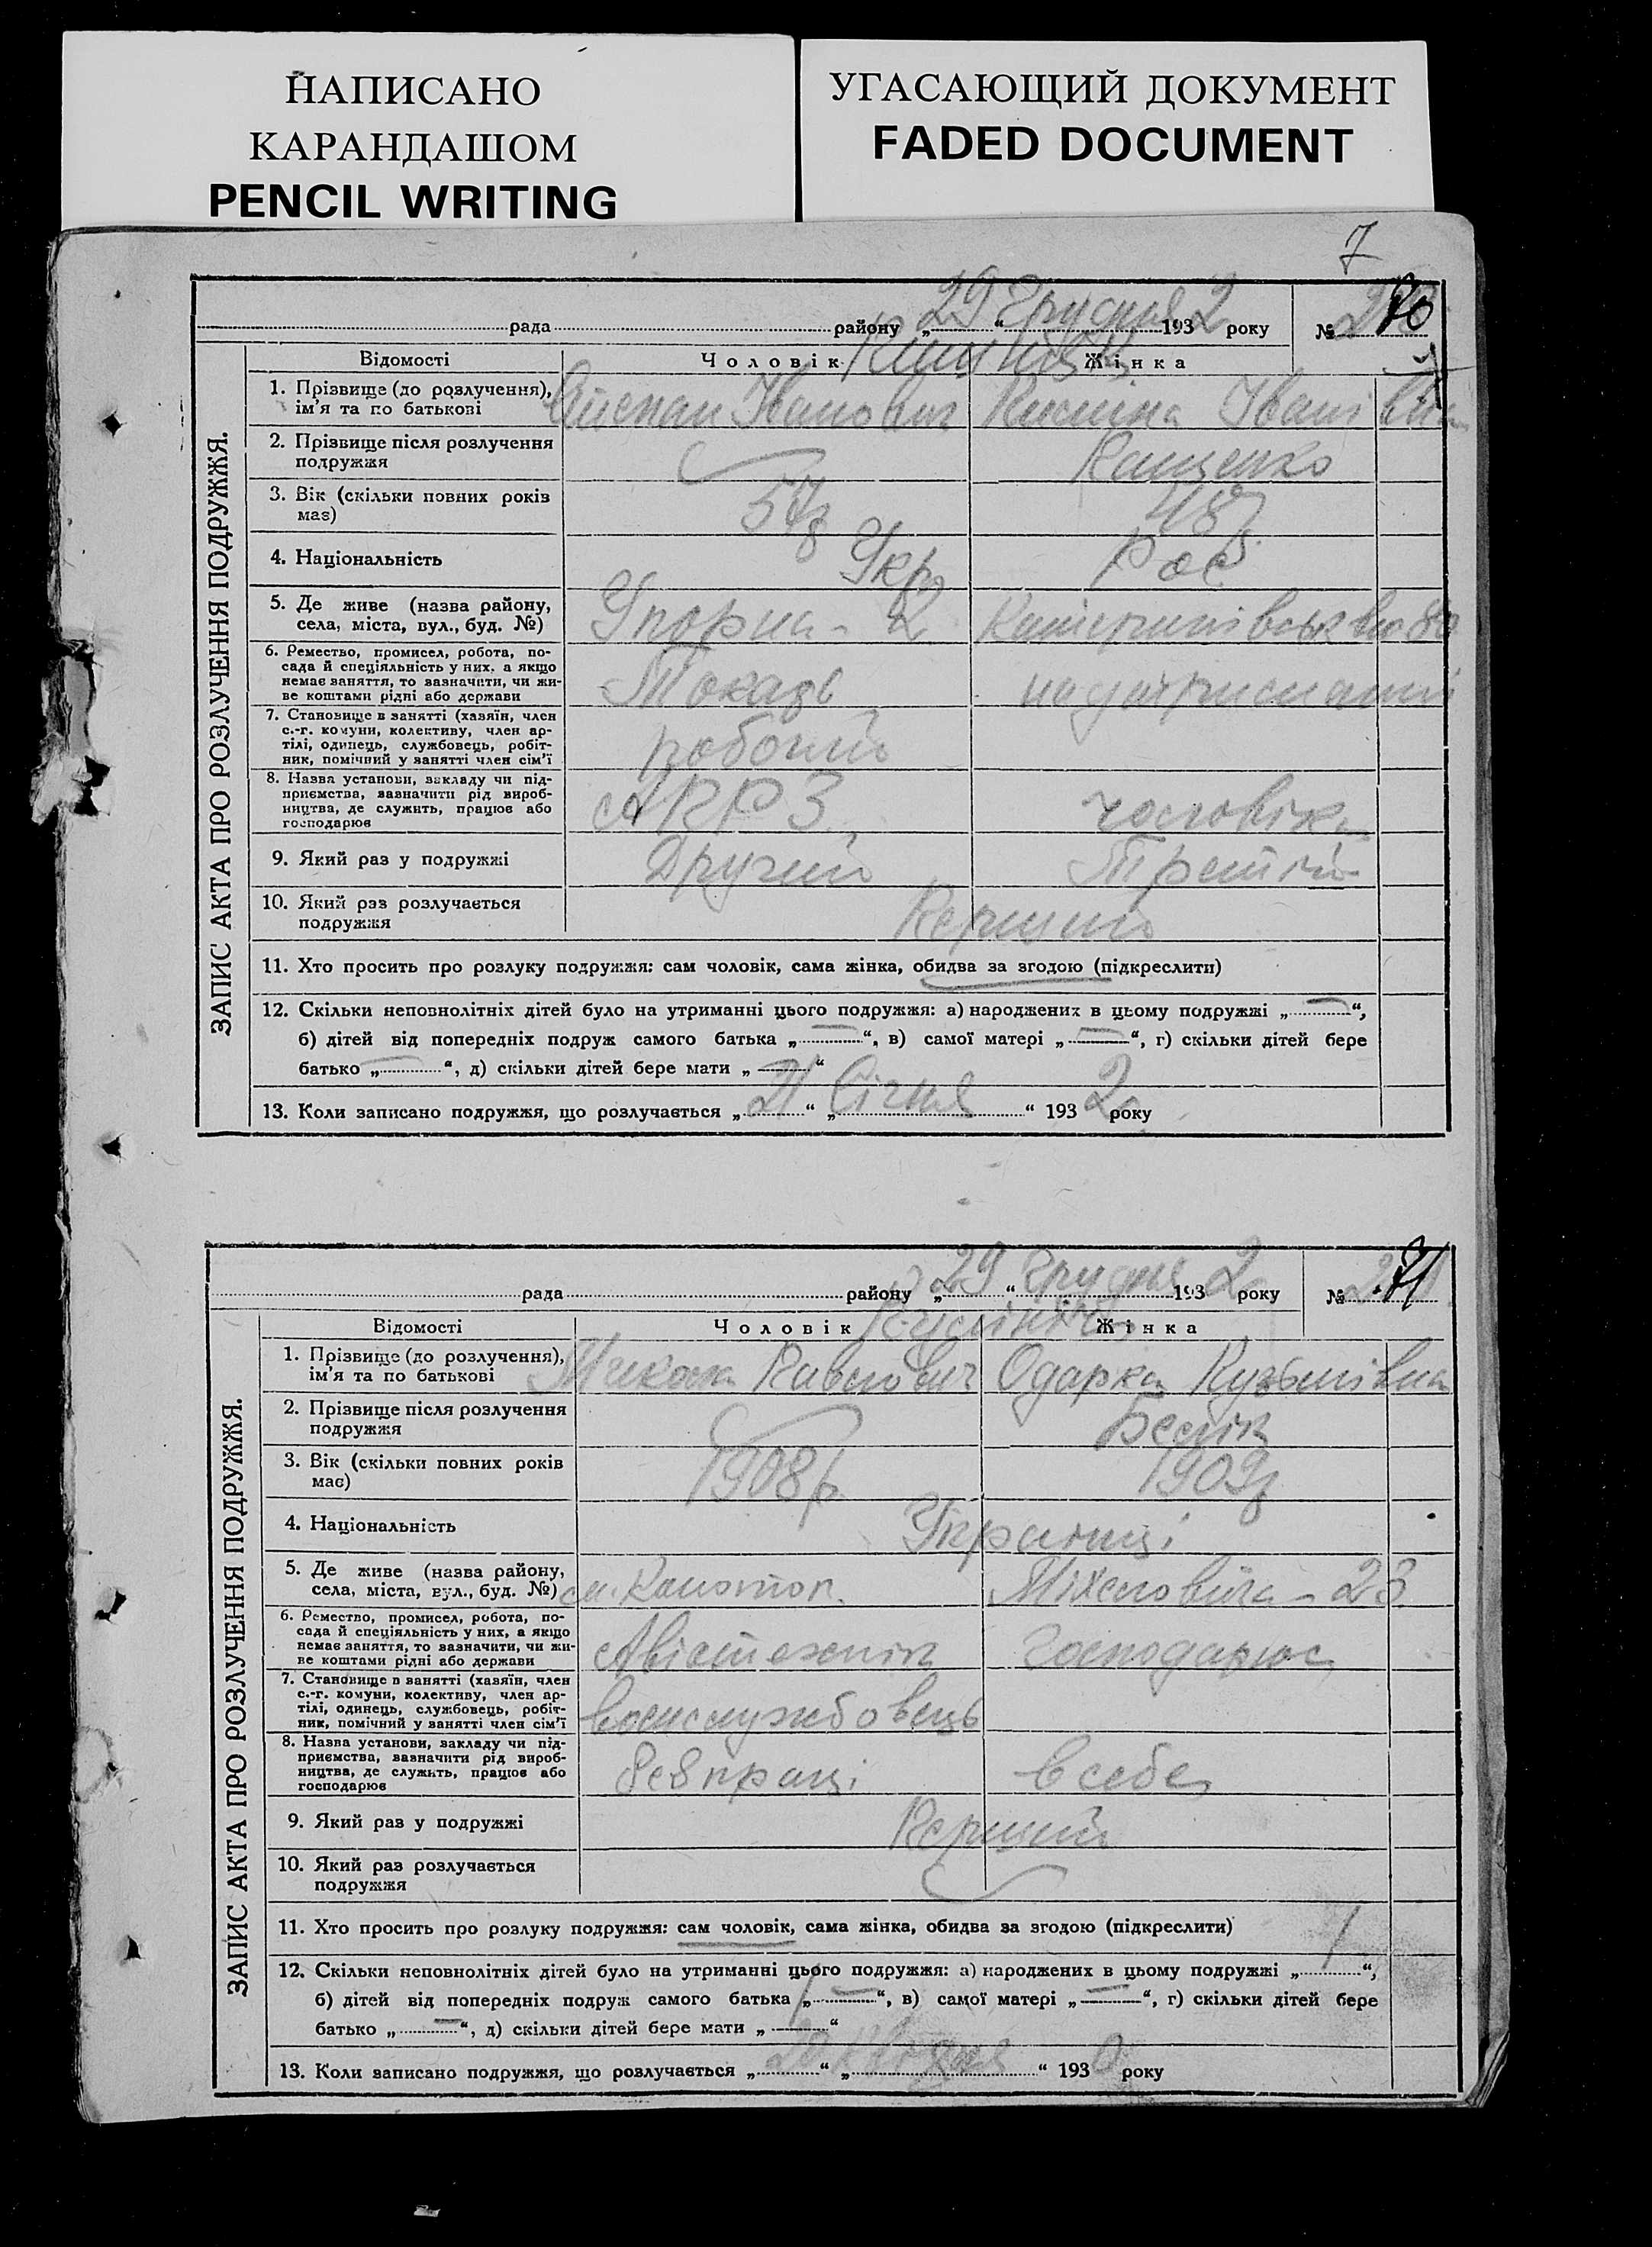 НАПИСАНО
КАРАНДАШОМ
PENCIL WRITING
УГАСАЮЩИЙ ДОКУМЕНТ
FADED DOCUMENT
7
ЗАПИС АКТА ПРО РОЗЛУЧЕННЯ ПОДРУЖЖЯ.
рада району „29“ Грудня 1932 року №
Відомості Чоловік Жінка
1. Прізвище (до розлучення), ім'я та по батькові Іванович Іванівна
2. Прізвище після розлучення подружжя Кащенко
3. Вік (скільки повних років має) 57р 48р
4. Національність Укр. Рос
5. Де живе (назва району, села, міста, вул., буд. №) Упорна - 2
6. Ремество, промисел, робота, посада й спеціяльність у них, а якщо немає заняття, то зазначити, чи живе коштами рідні або держави Токарь на утриманні
7. Становище в занятті (хазяїн, член с.-г. комуни, колективу, член артілі, одинець, службовець, робітник, помічний у занятті член сім'ї робочий
8. Назва установи, закладу чи підприємства, зазначити рід виробництва, де служить, працює або господарює АРРЗ чоловіка
9. Який раз у подружжі Другий Третій
10. Який раз розлучається подружжя Перший
11. Хто просить про розлуку подружжя: сам чоловік, сама жінка, обидва за згодою (підкреслити)
12. Скільки неповнолітніх дітей було на утриманні цього подружжя: а) народжених в цьому подружжі „—“,
б) дітей від попередніх подруж самого батька „—“, в) самої матері „—“, г) скільки дітей бере
батько „—“, д) скільки дітей бере мати „—“
13. Коли записано подружжя, що розлучається „21“ „Січня“ 1932 року
ЗАПИС АКТА ПРО РОЗЛУЧЕННЯ ПОДРУЖЖЯ.
рада району „29“ Грудня 1932 року № 71
Відомості Чоловік Жінка
1. Прізвище (до розлучення), ім'я та по батькові Павлович Одарка Кузьмівна
2. Прізвище після розлучення подружжя
3. Вік (скільки повних років має) 1908р 1909р
4. Національність Українці
5. Де живе (назва району, села, міста, вул., буд. №) м. Конотоп.
6. Ремество, промисел, робота, посада й спеціяльність у них, а якщо немає заняття, то зазначити, чи живе коштами рідні або держави Авіатехнік Господарює
7. Становище в занятті (хазяїн, член с.-г. комуни, колективу, член артілі, одинець, службовець, робітник, помічний у занятті член сім'ї воєнслужбовець
8. Назва установи, закладу чи підприємства, зазначити рід виробництва, де служить, працює або господарює в себе
9. Який раз у подружжі Перший
10. Який раз розлучається подружжя
11. Хто просить про розлуку подружжя: сам чоловік, сама жінка, обидва за згодою (підкреслити)
12. Скільки неповнолітніх дітей було на утриманні цього подружжя: а) народжених в цьому подружжі „1“,
б) дітей від попередніх подруж самого батька „—“, в) самої матері „—“, г) скільки дітей бере
батько „—“, д) скільки дітей бере мати „1“
13. Коли записано подружжя, що розлучається 1930 року